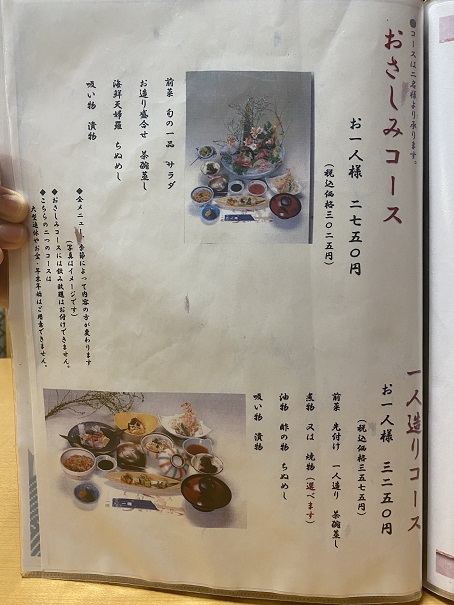 ●コースは二名様より承ります。
おさしみコース
お一人様 二七五〇円
(税込価格三〇二五円)
前菜 旬の一品 サラダ
お造り盛合せ 茶碗蒸し
海鮮天婦羅 ちぬめし
吸い物 漬物
◆全メニュー、季節によって内容の方が変わります
(写真はイメージです)
◆おさしみコースには飲み放題はお付けできません。
◆こちらの二つのコースは
大型連休やお盆・年末年始はご用意できません。
一人造りコース
お一人様 三二五〇円
(税込価格三五七五円)
前菜 先付け 一人造り 茶碗蒸し
煮物 又は 焼物(選べます)
油物 酢の物 ちぬめし
吸い物 漬物